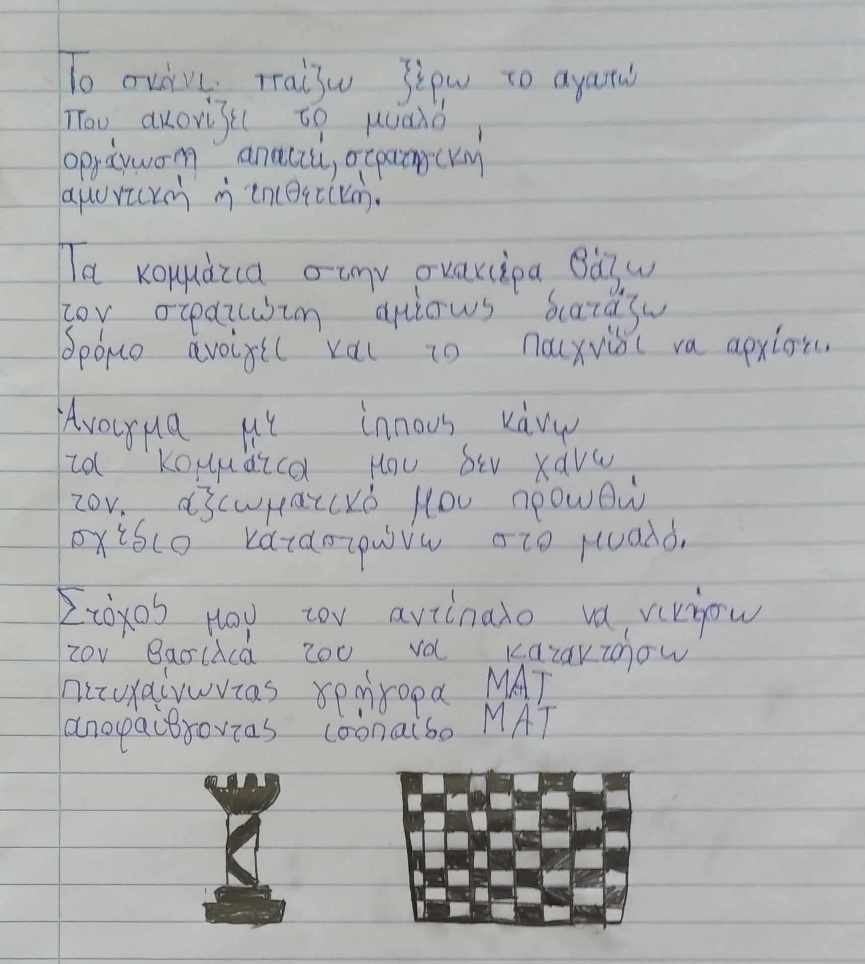 Το σκάκι παίζω ξέρω το αγαπώ
που ακονίζει το μυαλό,
οργάνωση απαιτεί, στρατηγική
αμυντική ή επιθετική.
Τα κομμάτια στην σκακιέρα βάζω
τον στρατιώτη αμέσως διατάζω
δρόμο ανοίγει και το παιχνίδι να αρχίσει.
Άνοιγμα με ίππους κάνω
τα κομμάτια μου δεν χάνω
τον αξιωματικό μου προωθώ
σχέδιο καταστρώνω στο μυαλό.
Στόχος μου τον αντίπαλο να νικήσω
τον βασιλιά του να κατακτήσω
πετυχαίνωντας γρήγορα ΜΑΤ
αποφαίβγοντας ισόπαιδο ΜΑΤ